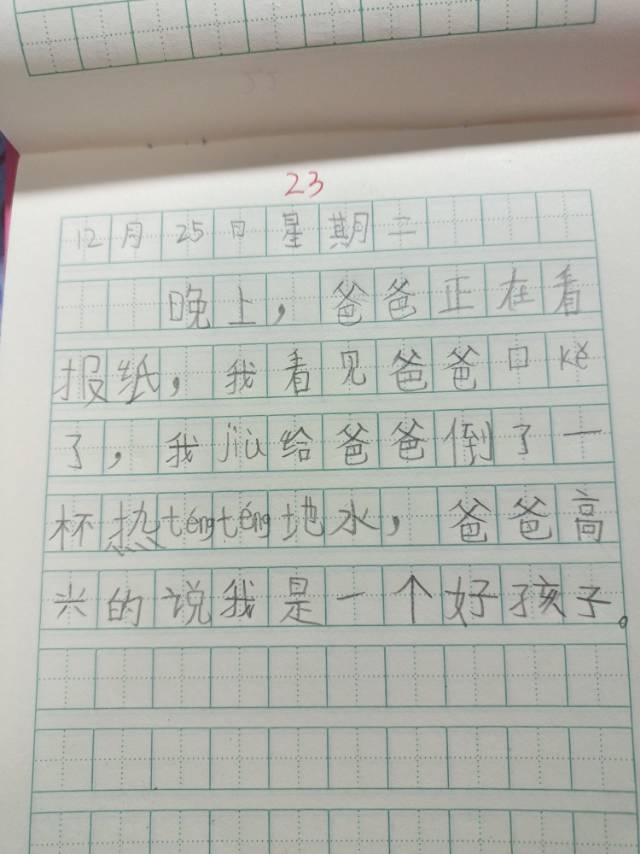 23
12月25日星期二
晚上，爸爸正在看
报纸，我看见爸爸口kě
了，我jiù给爸爸倒了一
杯热téngténg地水，爸爸高
兴的说我是一个好孩子。